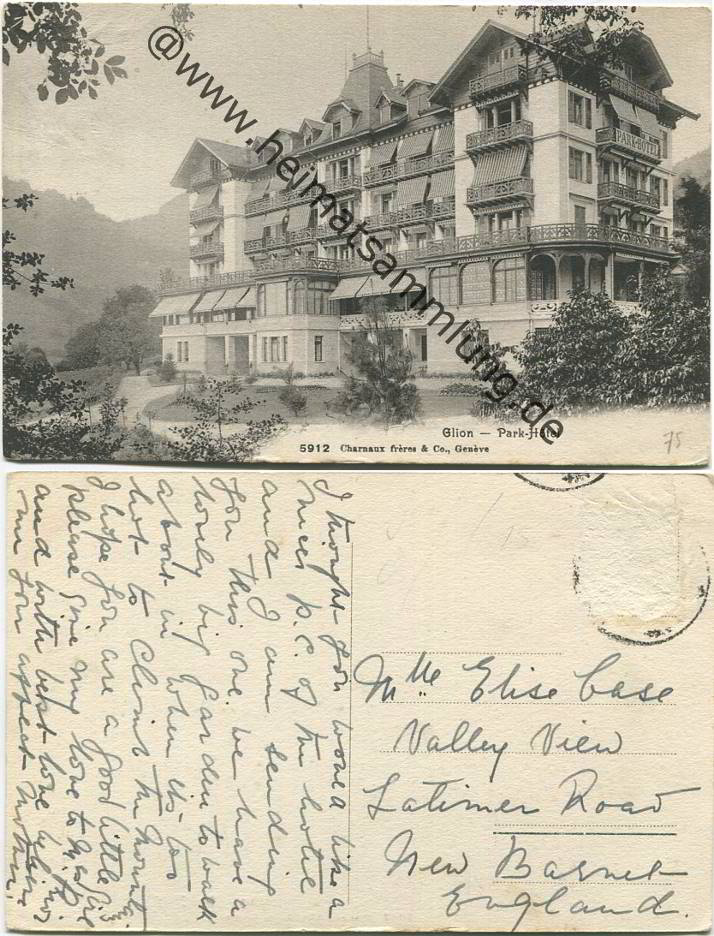 @www.heimatsammlung.de
PARK-HOTEL
Glion — Park-Hôtel
5912 Charnaux frères & Co., Genève
75
I thought you would like a
nicer p.c. of the hotel
and I am sending
you this one. we have a
lovely big garden to walk
about in when it's too
hot to climb the mountains
I hope you are a good little girl
please give my love to
and with best love
your affect. Mother.
Mlle Elise Case
Valley View
Latimer Road
New Barnet
England.